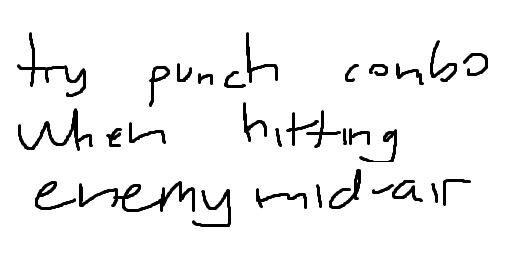 try punch combo
when hitting
enemy mid-air